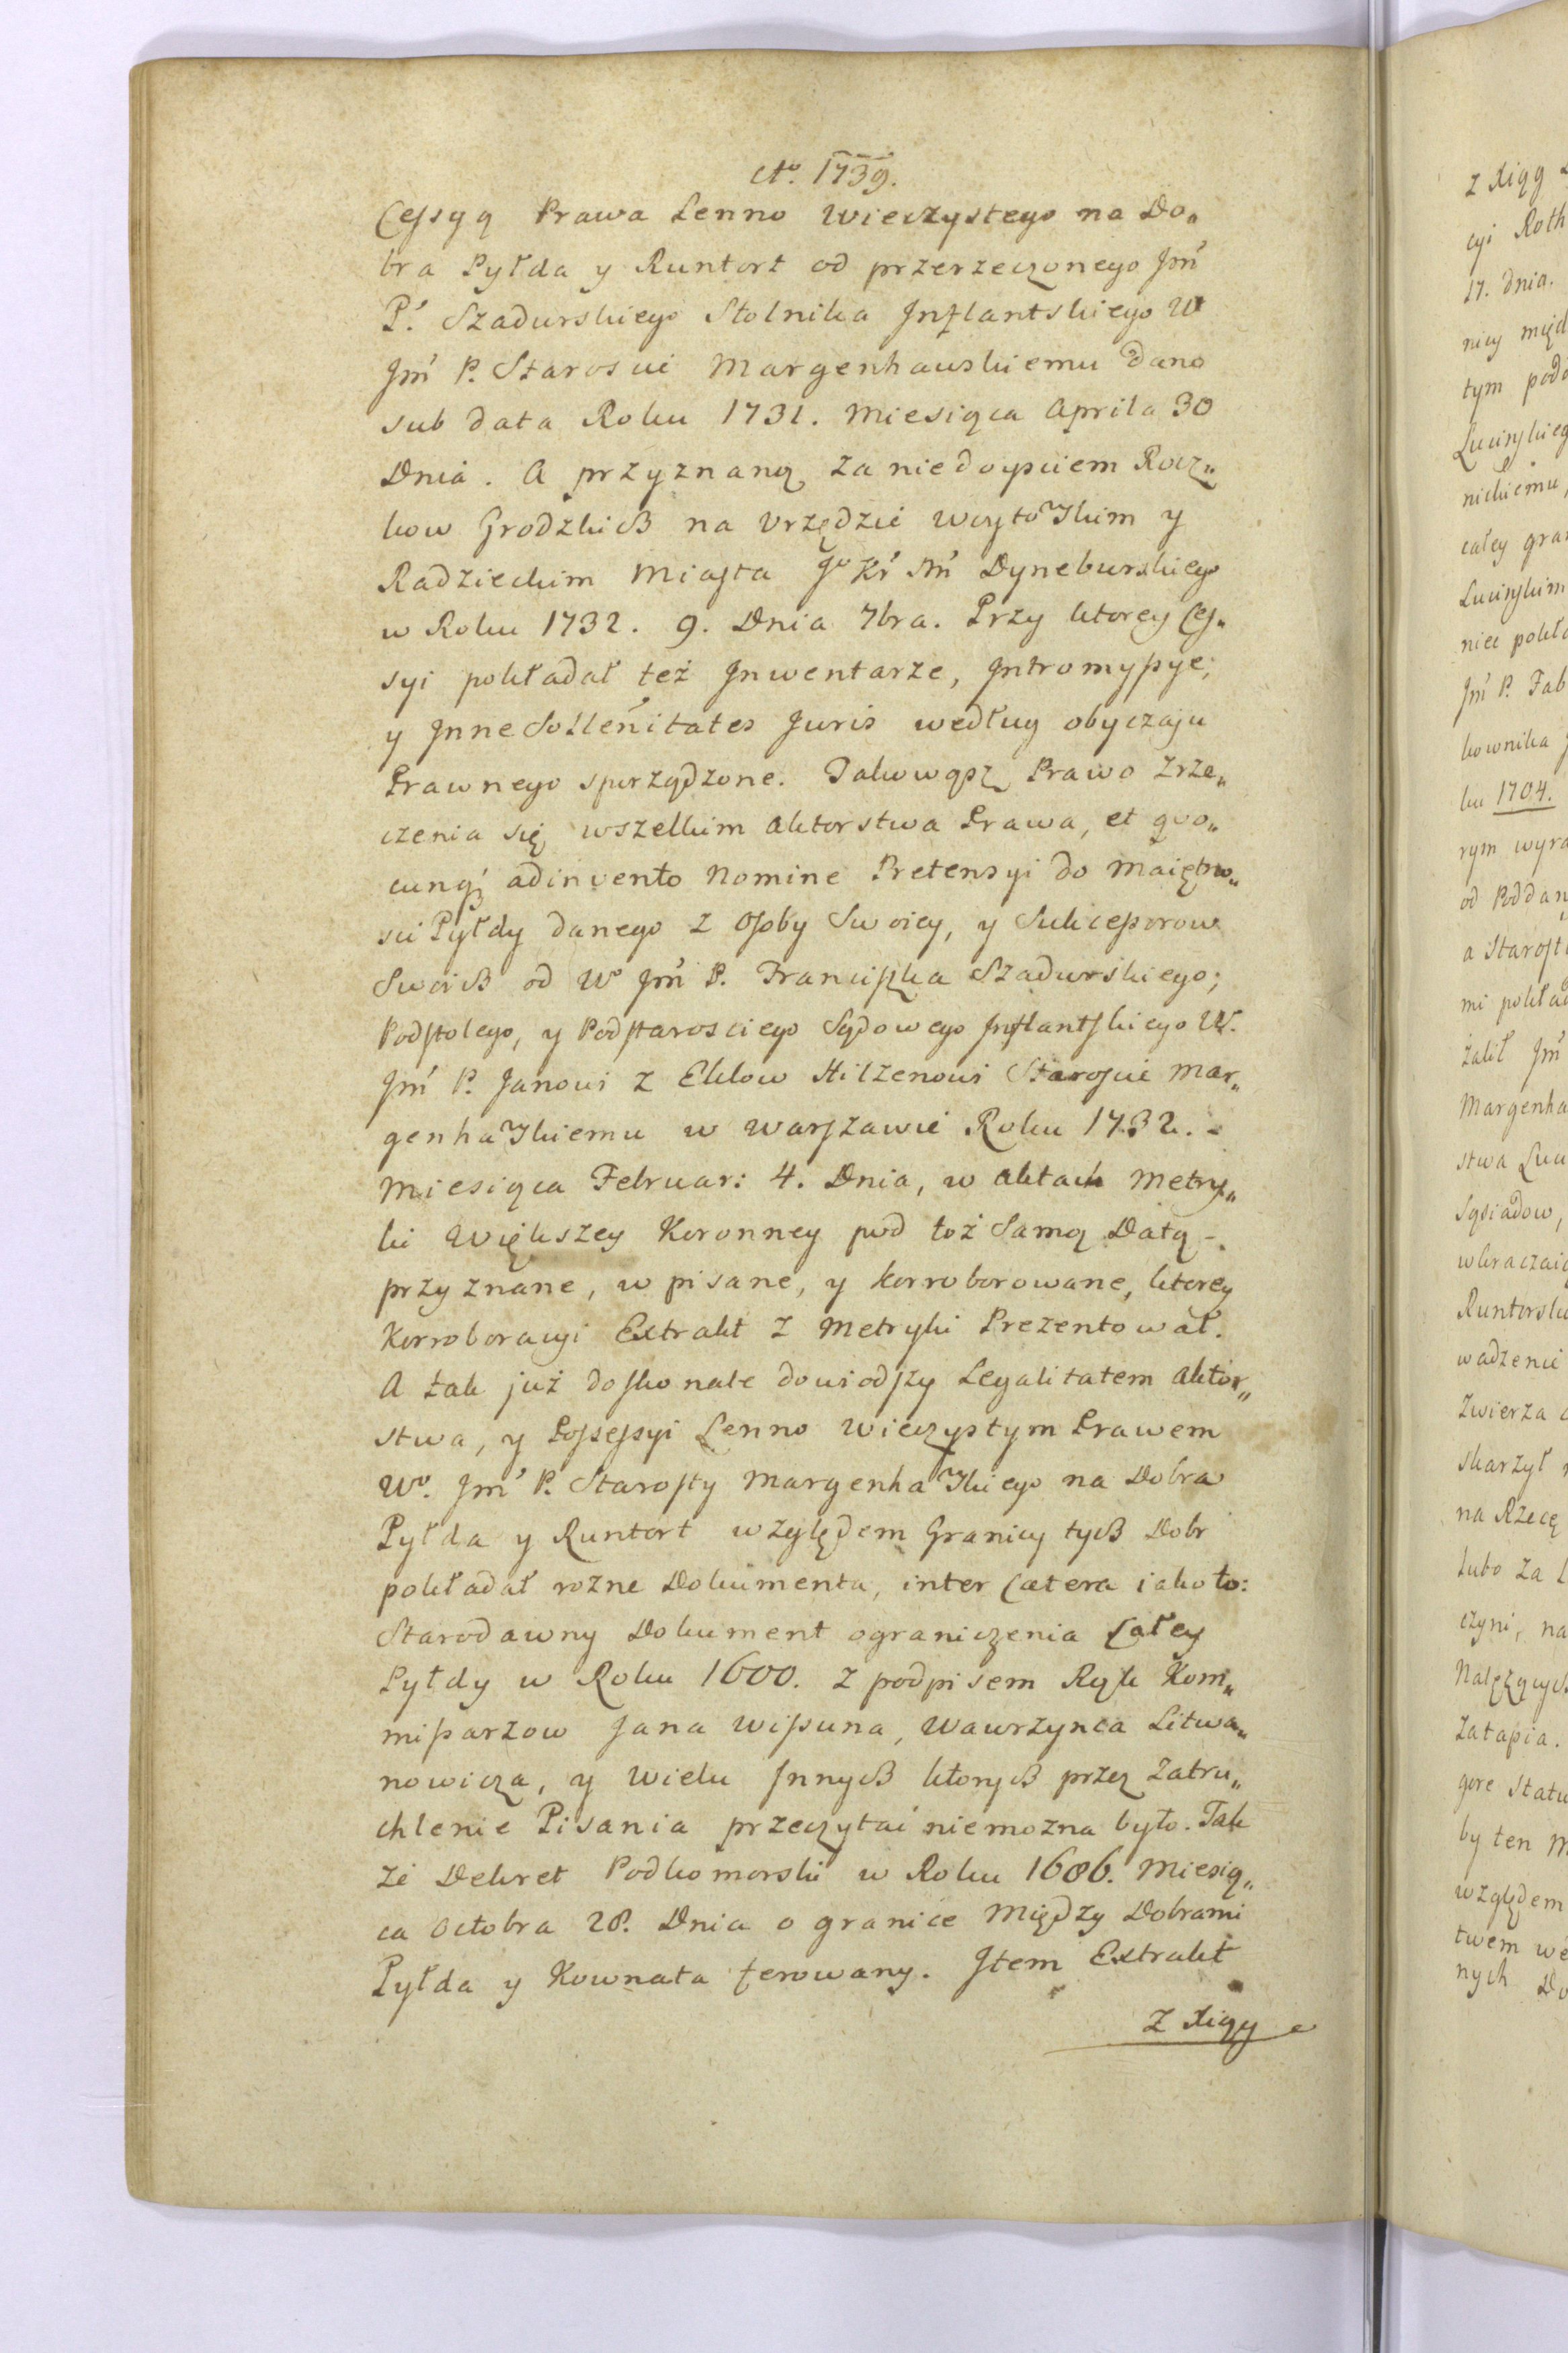 Ao. 1739.
Cessyą Prawa Lenno wieczystego na Do„
bra Pyłda y Runtort od przerzeczonego Jm̃
P. Szadurskiego Stolnika Inflantskiego W
Jm̃ P. Starosci Margenhauskiemu dano
sub data Roku 1731. Miesiąca Aprila 30
Dnia. A przyznaną za niedoyściem Rocz„
kow Grodzkich na Vrzędzie woytowskim y
Radzieckim Miasta Jo Kr Mci Dyneburskiego
w Roku 1732. 9. Dnia 7bra. Przy ktorey Ces„
syi pokładał też Inwentarze, Intromyssye,
y Inne Sollennitates Juris według obyczaju
Prawnego sporządzone. Takowąsz Prawo zrze„
czenia się wszelkim aktorstwa Prawa, et quo„
cunq adinvento Nomine Pretensyi do Maiętno„
sci Pyłdy danego z Osoby Swoiey, y Sukcessorow
Swoich od Wo Jm̃ P. Franciszka Szadurskiego;
Podstolego, y Podstarosciego Sądowego Inflantskiego W.
Jm̃ P. Janowi z Eklow Hilzenowi Staroscie Mar„
genhauskiemu w Warszawie Roku 1732. -
Miesiąca Februar: 4. Dnia, w aktach Metry„
ki Większey Koronney pod toż Samą Datą -
przyznane, w pisane, y korroborowane, ktorey
Korroboracyi Extrakt z Metryki Prezentował.
A tak już doskonale dowiodszy Legalitatem aktor„
stwa, y Possessyi Lenno wieczystym Prawem
Wo. Jm̃ P. Starosty Margenhauskiego na Dobra
Pyłda y Runtort względem Granicy tych Dobr
pokładał rozne Dokumenta, inter Cætera iako to:
Starodawny Dokument ograniczenia Całey
Pyłdy w Roku 1600. z podpisem Rąk Kom„
missarzow Jana Wissuna, Wawrzynca Litwa„
nowicza, y Wielu Innych ktorych przez Zatru„
chlenie Pisania przeczytać niemozna było. Tak
że Dekret Podkomorski w Roku 1686. Miesią„
ca Octobra 28. Dnia o granice Między Dobrami
Pyłda y Kownata ferowany. Item Extrakt
z Xiąg
z Xiąg
cyi Roth
17. dnia.
nicy międ
tym podo
Lucinskieg
nickiemu,
całey gran
Lucinskim
niec pokła
Jm̃ P. Fab
kownika J
ku 1704.
rym wyra
od Poddan
a Starost
mi pokład
żalił Jm̃
Margenha
stwa Luc
Sąsiadow,
wkraczaią
Runtorsk
wadzenie
Zwierza
skarzył
na Rzecę
Lubo za
czyni, na
Należących
zatapia.
gore Statu
by ten M
względem
twem we
nych Do